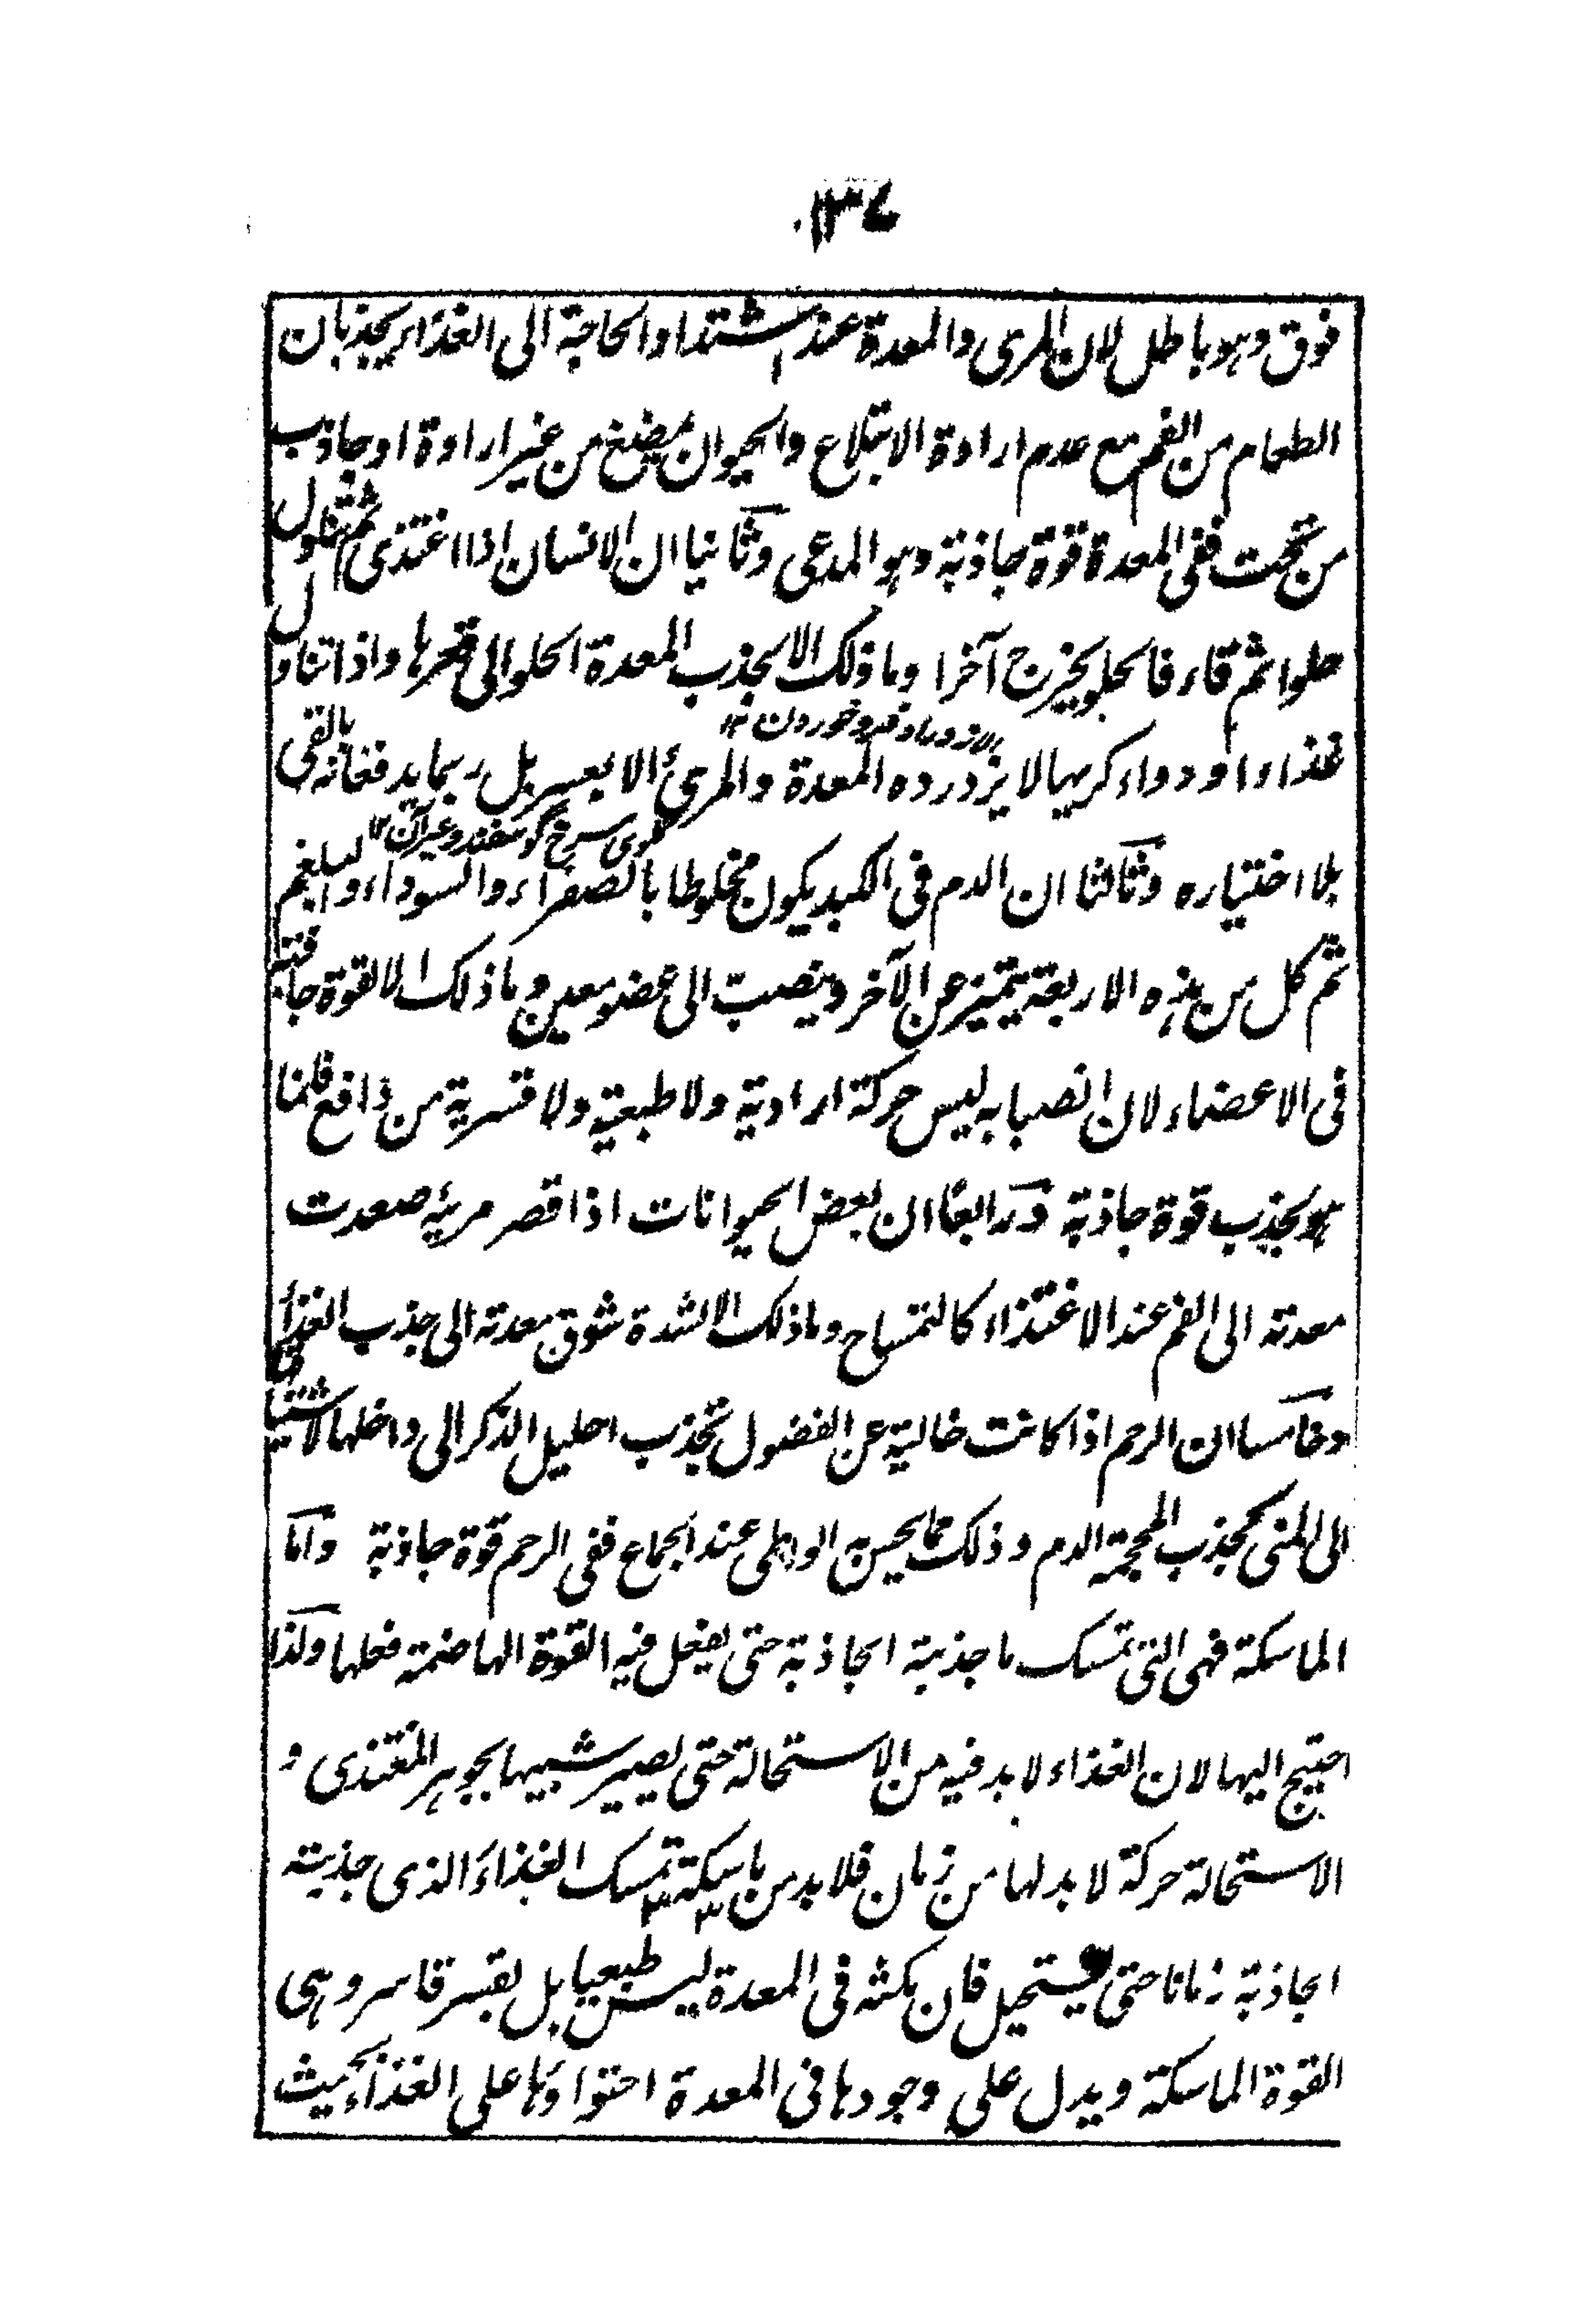 ١٣٤
فوق وهو باطل لان المرى والمعدة عند اشتداد الحاجة الى الغذاء يجذبان
الطعام من الفم مع عدم ارادة الابتلاع والحيوان يمضغ من غير ارادة او جاذب
من تحت ففى المعدة قوة جاذبة وهو المدعى وثانيا ان الانسان اذا اغتذى ثم تناول
حلوا ثم قاء فالحلو يخرج آخرا وما ذلك الا لجذب المعدة الحلو الى قعرها واذا تناول
فرو خوردن ١٢
غذاء او دواء كريها لا يزدرده المعدة والمرئ الا بعسر بل ربما يدفعانه بالقى
سرخ گوسفند وغيرآن ١٢
بلا اختياره وثالثا ان الدم فى الكبد يكون مخلوطا بالصفراء والسوداء والبلغم
ثم كل من هذه الاربعة يتميز عن الآخر وينصب الى عضو معين وما ذلك الا لقوة جاذبة
فى الاعضاء لان انصبابه ليس حركة ارادية ولا طبعية ولا قسرية من دافع فانما
هو بجذب قوة جاذبة ورابعا ان بعض الحيوانات اذا قصر مريه صعدت
معدته الى الفم عند الاغتذاء كالتمساح وما ذلك الا لشدة شوق معدته الى جذب الغذاء
وخامسا ان الرحم اذا كانت خالية عن الفضول تجذب احليل الذكر الى داخلها لاشتياقها
الى المنى كجذب المحجمة الدم وذلك مما يحس به الواطى عند الجماع ففى الرحم قوة جاذبة واما
الماسكة فهى التى تمسك ما جذبته الجاذبة حتى يفعل فيه القوة الهاضمة فعلها ولذا
احتيج اليها لان الغذاء لا بد فيه من الاستحالة حتى يصير شبيها بجوهر المغتذى و
الاستحالة حركة لا بد لها من زمان فلا بد من ماسكة تمسك الغذاء الذى جذبته
الجاذبة زمانا حتى يستحيل فان مكثه فى المعدة ليس طبعيا بل بقسر قاسر وهى
القوة الماسكة ويدل على وجودها فى المعدة احتواؤها على الغذاء بحيث